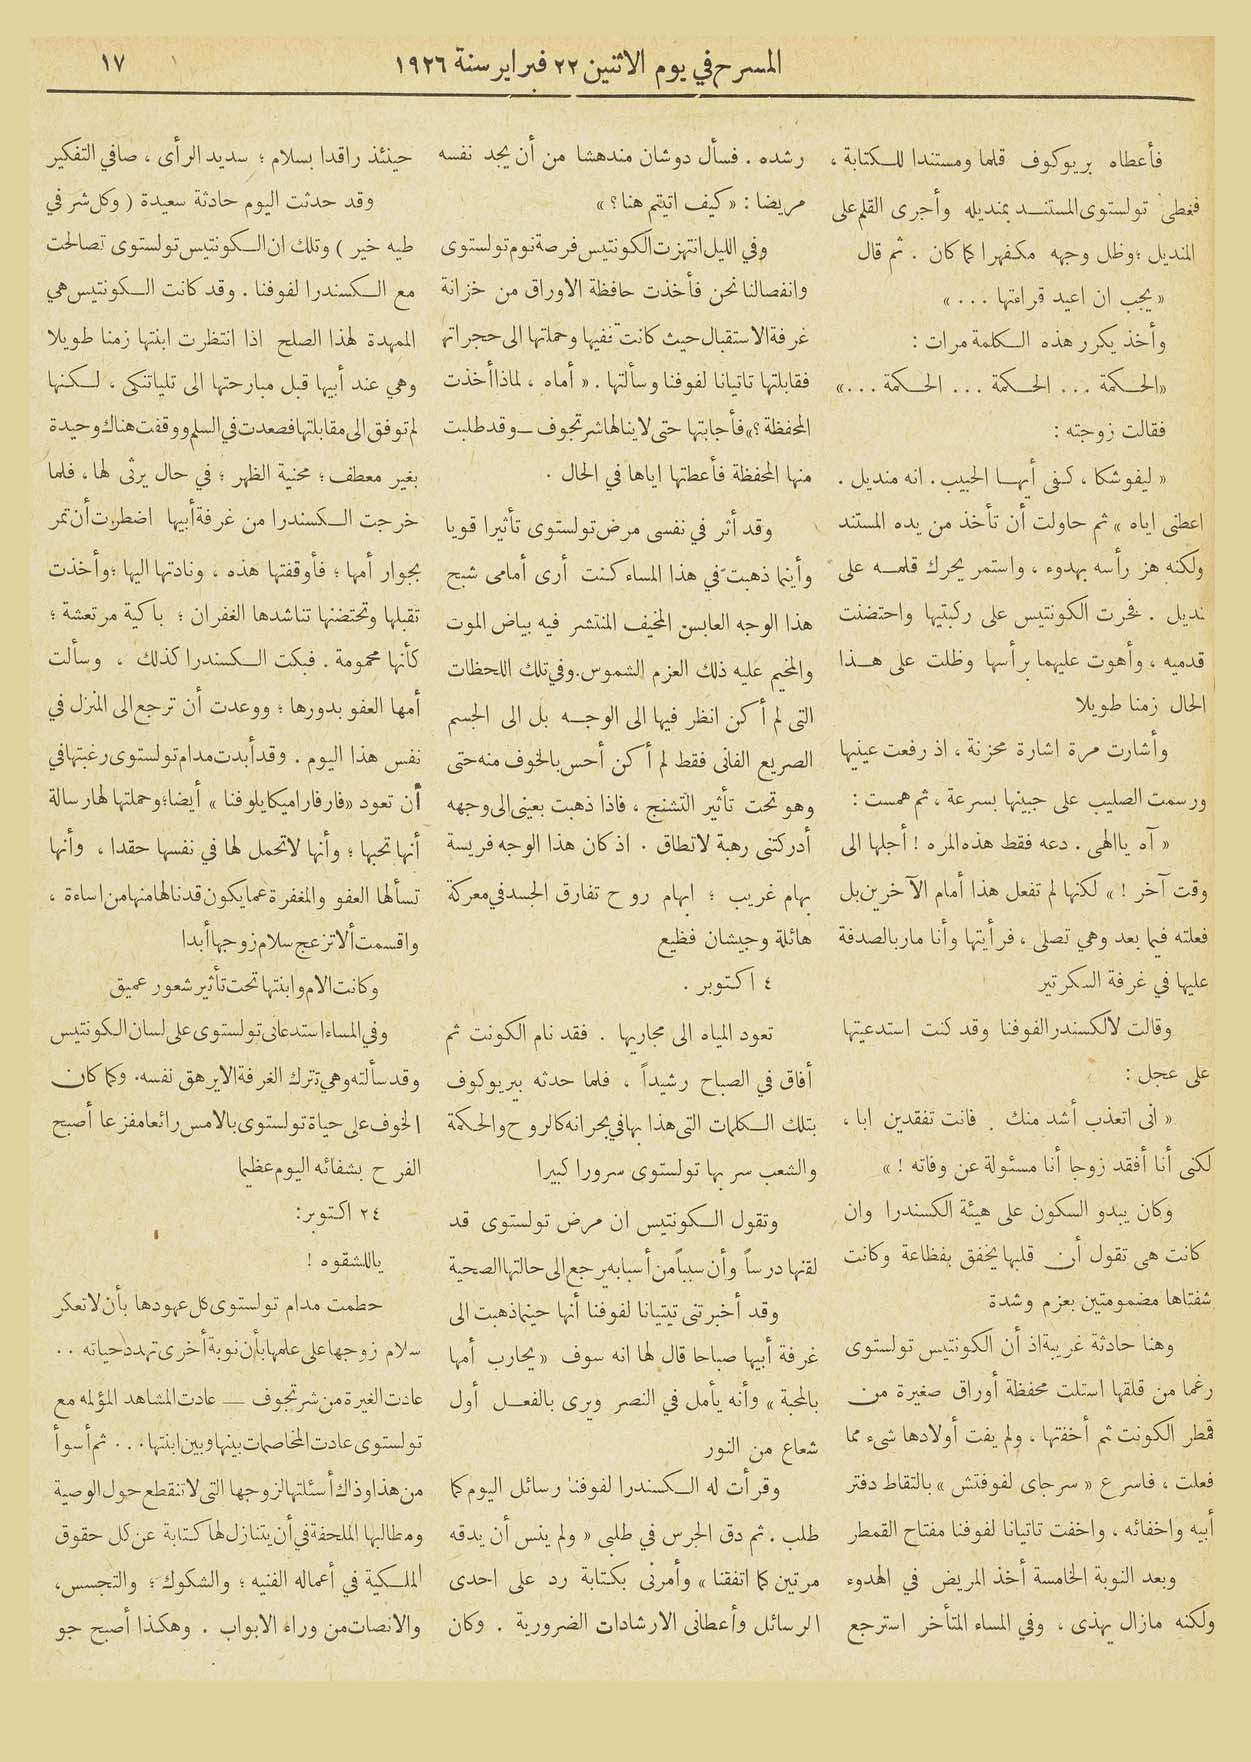 المسرح في يوم الاثنين ٢٢ فبراير سنة ١٩٢٦
١٧
فأعطاه بريوكوف قلما ومستندا للكتابة ،
فغطى تولستوى المستند بمنديله وأجرى القلم على
المنديل ؛ وظل وجهه مكفهرا كما كان . ثم قال
« يجب ان اعيد قراءتها . . . »
وأخذ يكرر هذه الكلمة مرات :
« الحكمة . . . الحكمة . . . الحكمة . . . »
فقالت زوجته :
« ليفوشكا ، كفى أيها الحبيب . انه منديل .
اعطنى اياه » ثم حاولت أن تأخذ من يده المستند
ولكنه هز رأسه بهدوء ، واستمر يحرك قلمه على
نديل . فخرت الكونتيس على ركبتيها واحتضنت
قدميه ، وأهوت عليهما برأسها وظلت على هذا
الحال زمنا طويلا
وأشارت مرة اشارة محزنة ، اذ رفعت عينيها
ورسمت الصليب على جبينها بسرعة ، ثم همست :
« آه يا الهى . دعه فقط هذه المره ! أجلها الى
وقت آخر ! » لكنها لم تفعل هذا أمام الآخرين بل
فعلته فيما بعد وهي تصلى ، فرأيتها وأنا مار بالصدفة
عليها في غرفة السكرتير
وقالت لالكسندر الفوفنا وقد كنت استدعيتها
على عجل :
« انى اتعذب أشد منك . فانت تفقدين ابا ،
لكنى أنا أفقد زوجا أنا مسئولة عن وفاته ! »
وكان يبدو السكون على هيئة الكسندرا وان
كانت هى تقول أن قلبها يخفق بفظاعة وكانت
شفتاها مضمومتين بعزم وشدة
وهنا حادثة غريبة اذ أن الكونتيس تولستوى
رغما من قلقها استلت محفظة أوراق صغيرة من
قمطر الكونت ثم أخفتها ، ولم يفت أولادها شىء مما
فعلت ، فاسرع « سرجاى لفوفتش » بالتقاط دفتر
أبيه واخفائه ، واخفت تاتيانا لفوفنا مفتاح القمطر
وبعد النوبة الخامسة أخذ المريض في الهدوء
ولكنه مازال يهذى ، وفي المساء المتأخر استرجع
رشده . فسأل دوشان مندهشا من أن يجد نفسه
مريضا : « كيف اتيتم هنا ؟ »
وفي الليل انتهزت الكونتيس فرصة نوم تولستوى
وانفصالنا نحن فأخذت حافظة الاوراق من خزانة
غرفة الاستقبال حيث كانت تخفيها وحملتها الى حجراتها
فقابلتها تاتيانا لفوفنا وسألتها . « أماه ، لماذا أخذت
المحفظة ؟ » فأجابتها حتى لا ينالها شرتجوف ــ وقد طلبت
منها المحفظة فأعطتها اياها في الحال .
وقد أثر في نفسى مرض تولستوى تأثيرا قويا
وأينما ذهبت في هذا المساء كنت أرى أمامى شبح
هذا الوجه العابس المخيف المنتشر فيه بياض الموت
والمخيم عليه ذلك العزم الشموس . وفي تلك اللحظات
التى لم أكن انظر فيها الى الوجه بل الى الجسم
الصريع الفانى فقط لم أكن أحس بالخوف منه حتى
وهو تحت تأثير التشنج ، فاذا ذهبت بعينى الى وجهه
أدركتنى رهبة لا تطاق . اذ كان هذا الوجه فريسة
بهام غريب ؛ ابهام روح تفارق الجسد في معركة
هائلة وجيشان فظيع
٤ اكتوبر .
تعود المياه الى مجاريها . فقد نام الكونت ثم
أفاق في الصباح رشيداً ، فلما حدثه بيريوكوف
بتلك الكلمات التى هذا بها في بحرانه كالروح والحكمة
والشعب سر بها تولستوى سرورا كبيرا
وتقول الكونتيس ان مرض تولستوى قد
لقنها درساً وأن سبباً من أسبابه يرجع الى حالتها الصحية
وقد أخبرتنى تيتيانا لفوفنا أنها حينما ذهبت الى
غرفة أبيها صباحا قال لها انه سوف « يحارب أمها
بالمحبة » وأنه يأمل في النصر ويرى بالفعل أول
شعاع من النور
وقرأت له الكسندرا لفوفنا رسائل اليوم كما
طلب . ثم دق الجرس في طلبى « ولم ينس أن يدقه
مرتين كما اتفقنا » وأمرنى بكتابة رد على احدى
الرسائل وأعطانى الارشادات الضرورية . وكان
حينئذ راقدا بسلام ؛ سديد الرأى ، صافي التفكير
وقد حدثت اليوم حادثة سعيدة ( وكل شر في
طيه خير ) وتلك ان الكونتيس تولستوى تصالحت
مع الكسندرا لفوفنا . وقد كانت الكونتيس هي
الممهدة لهذا الصلح اذا انتظرت ابنتها زمنا طويلا
وهي عند أبيها قبل مبارحتها الى تلياتنكى ، لكنها
لم توفق الى مقابلتها فصعدت في السلم ووقفت هناك وحيدة
بغير معطف ؛ محنية الظهر ؛ في حال يرثى لها ، فلما
خرجت الكسندرا من غرفة أبيها اضطرت أن تمر
بجوار أمها ؛ فأوقفتها هذه ، ونادتها اليها ؛ وأخذت
تقبلها وتحتضنها تناشدها الغفران ؛ باكية مرتعشة ؛
كأنها محمومة . فبكت الكسندرا كذلك ، وسألت
أمها العفو بدورها ؛ ووعدت أن ترجع الى المنزل في
نفس هذا اليوم . وقد أبدت مدام تولستوى رغبتها في
أن تعود « فارفارا ميكايلوفنا » أيضا ؛ وحملتها لها رسالة
أنها تحبها ؛ وأنها لا تحمل لها في نفسها حقدا ، وأنها
تسألها العفو والمغفرة عما يكون قد نالها منها من اساءة ،
واقسمت ألا تزعج سلام زوجها أبدا
وكانت الام وابنتها تحت تأثير شعور عميق
وفي المساء استدعانى تولستوى على لسان الكونتيس
وقد سألته وهي تترك الغرفة الا يرهق نفسه . وكما كان
الخوف على حياة تولستوى بالامس رائعا مفزعا أصبح
الفرح بشفائه اليوم عظيما
٢٤ اكتوبر :
يا للشقوه !
حطمت مدام تولستوى كل عهودها بأن لا تعكر
سلام زوجها على علمها بأن نوبة أخرى تهدد حياته . .
عادت الغيرة من شرتجوف ــ عادت المشاهد المؤلمه مع
تولستوى عادت المخاصمات بينها وبين ابنتها . . . ثم أسوأ
من هذا وذاك أسئلتها لزوجها التى لا تنقطع حول الوصية
ومطالبها الملحفة في أن يتنازل لها كتابة عن كل حقوق
الملكية في أعماله الفنيه ؛ والشكوك ؛ والتجسس ،
والانصات من وراء الابواب . وهكذا أصبح جو